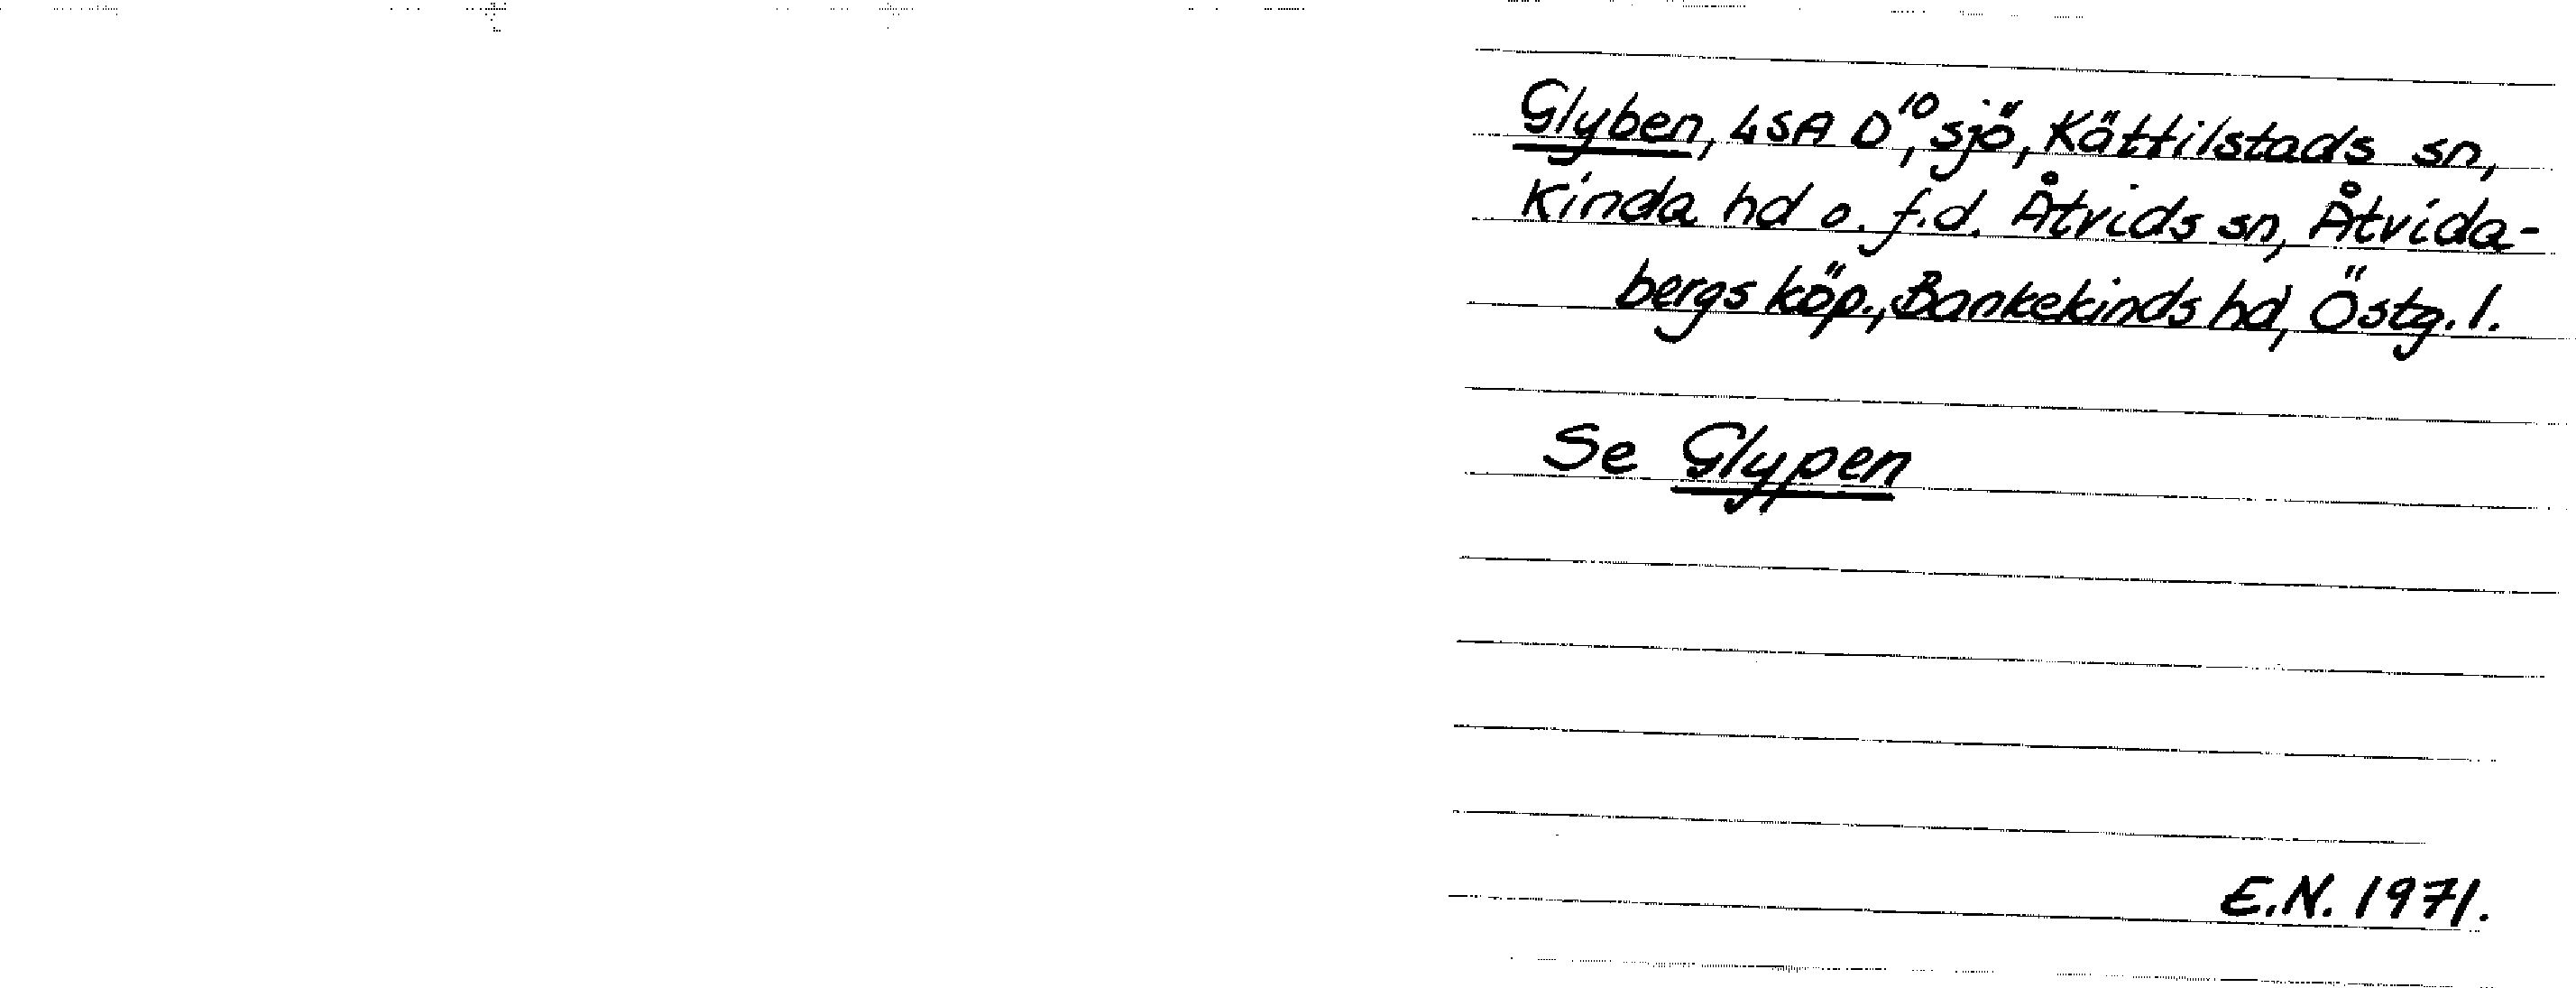 Glyben, 4SA D¹⁰, sjö, Kättilstads sn,
Kinda hd o. f.d. Åtvids sn, Åtvida-
bergs köp., Bankekinds hd, Östg. l.
Se Glypen
E.N. 1971.